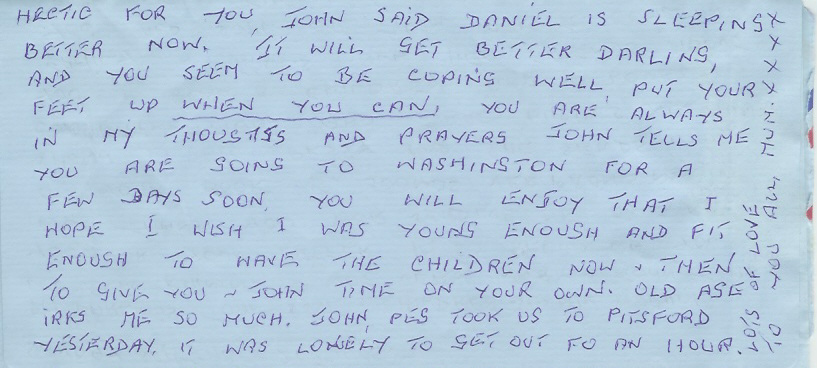 HECTIC FOR YOU, JOHN SAID DANIEL IS SLEEPING
BETTER NOW. IT WILL GET BETTER DARLING,
AND YOU SEEM TO BE COPING WELL, PUT YOUR
FEET UP WHEN YOU CAN, YOU ARE ALWAYS
IN MY THOUGTSS AND PRAYERS JOHN TELLS ME
YOU ARE GOING TO WASHINGTON FOR A
FEW DAYS SOON, YOU WILL ENJOY THAT I
HOPE I WISH I WAS YOUNG ENOUGH AND FIT
ENOUGH TO HAVE THE CHILDREN NOW & THEN
TO GIVE YOU & JOHN TIME ON YOUR OWN. OLD AGE
IRKS ME SO MUCH. JOHN, PEG TOOK US TO PITSFORD
YESTERDAY, IT WAS LONELY TO GET OUT FO AN HOUR.
LOTS OF LOVE
TO YOU ALL, MUM. X X X X X